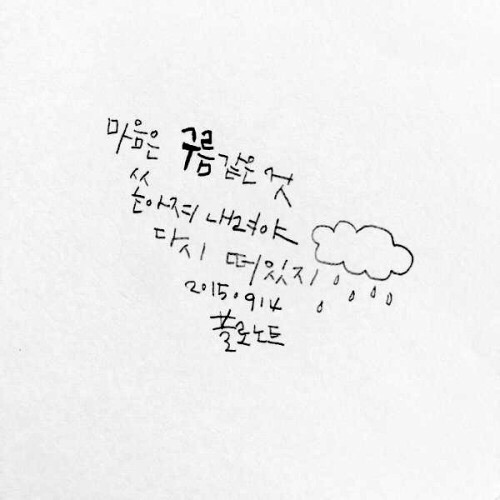 마음은 구름같은 것
쏟아져 내려야
다시 떠있지
20150914
플로노트